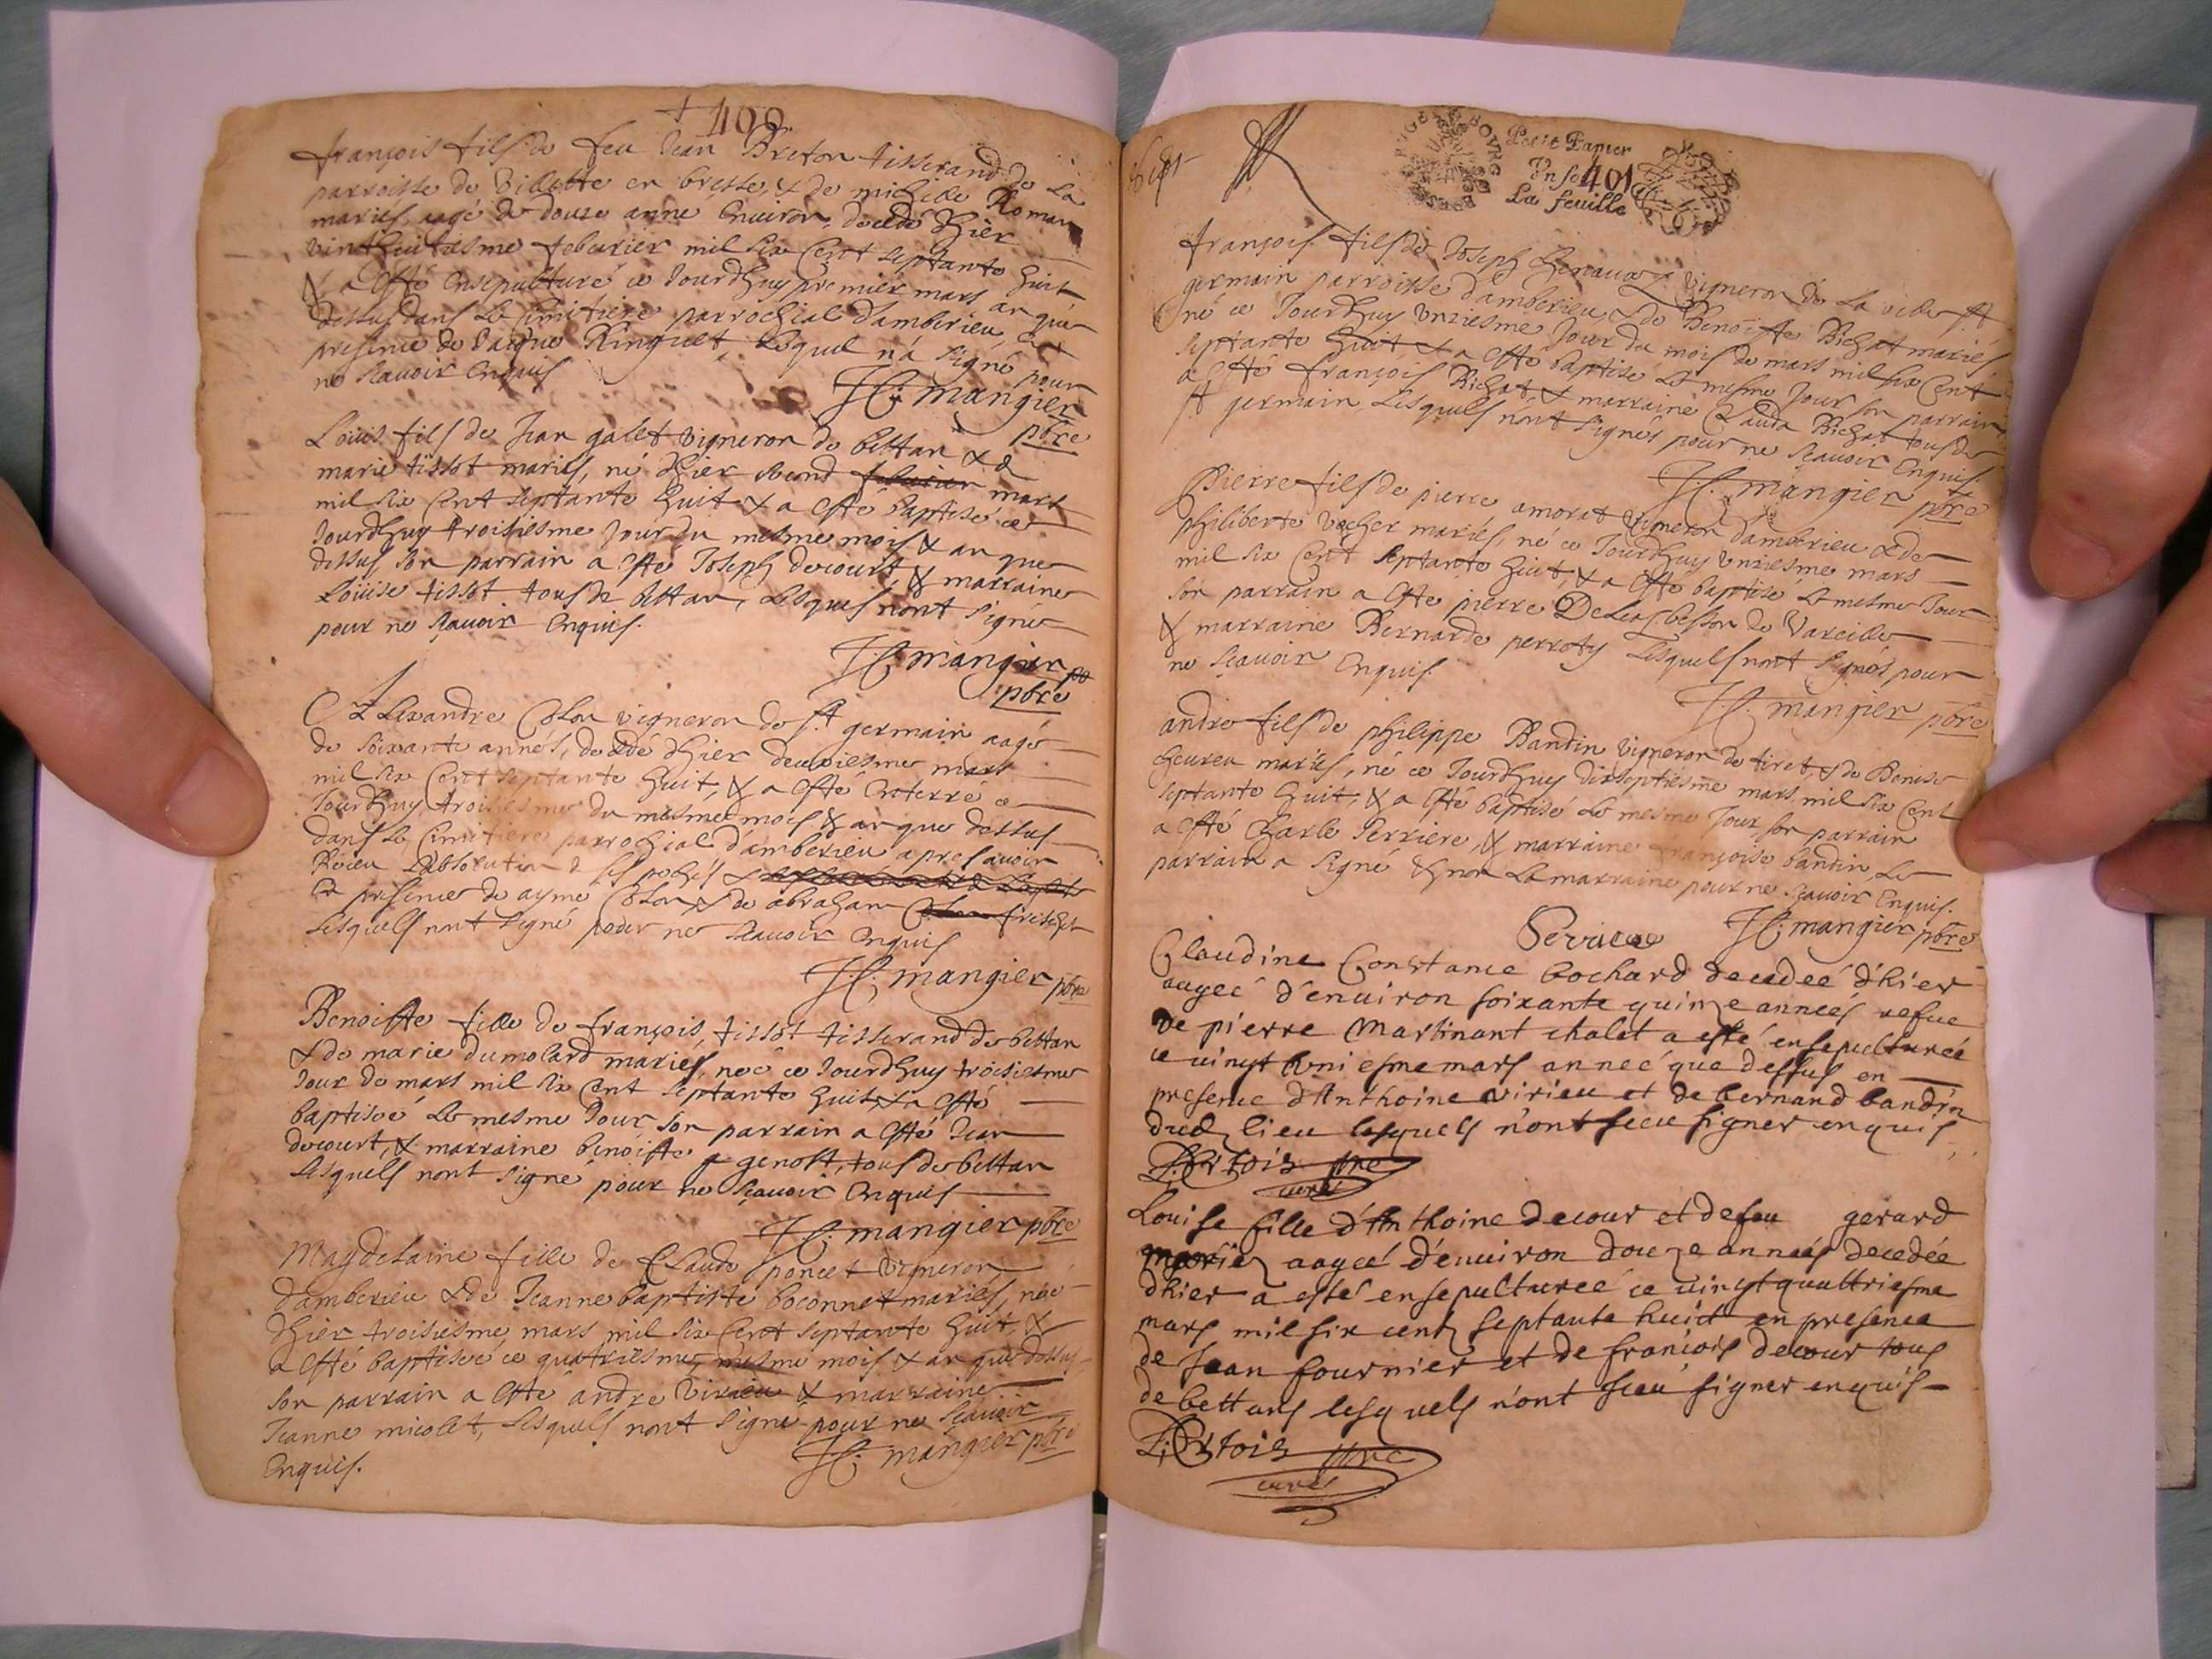 + 400
françois fils de feu Jean Breton tisserand de la
parroisse de Villette en bresse, & de michelle Roman
mariés, aagé de douze anné enuiron, decedé dhier
vinthuitiesme feburier mil six cent septante huit
& a esté ensepulturé ce Jourdhuy premier mars an que
dessus dans le cimitiere parrochial d'amberieu, en
presence de Ringuet lequel n'a signé pour
ne scauoir enquis
JC. mangier
pbre
Louis fils de Jean galet vigneron de bettan & de
marie tissot mariés, né dhier second feburier mars
mil six cent septante huit & a esté baptisé ce
Jourdhuy troisiesme Jour du mesme mois & an que
dessus son parrain a esté Joseph decourt, & marraine
Louise tissot tous de bettan, lesquels nont signé
pour ne scauoir enquis.
JC. mangier
pbre
Alexandre Colon vigneron de st germain aagé
de soixante annés, decedé dhier deuxiesme mars
mil six cent septante huit, & a esté enterré ce
Jourdhuy troisiesme du mesme mois & an que dessus
dans le cimitiere parrochial d'amberieu apres auoir
Receu l'absolution de ses pechés
en presence de aymé Colon, & de abraham
lesquels nont signé pour ne scauoir enquis
JC. mangier pbre
Benoiste fille de françois tissot tisserand de bettan
& de marie dumolard mariés, neé ce Jourdhuy troisiesme
Jour de mars mil six cent septante huit, & a esté
baptiseé le mesme Jour son parrain a esté Jean
decourt, & marraine benoiste genost, tous de bettan
lesquels nont signé pour ne scauoir enquis
JC. mangier pbre
Magdelaine fille de Claude poncet vigneron
d'amberieu & de Jeanne baptiste boconnet mariés, neé
dhier troisiesme mars mil six cent septante huit, &
a esté baptiseé ce quatriesme, mesme mois & an que dessus
son parrain a esté andre Virieu & marraine
Jeanne micolet, lesquels nont signé pour ne scauoir
enquis.
JC. mangier pbre
BOVRG
Petit Papier
In fo 401
La feuille
françois fils de Joseph Chenauax vigneron de La ville st
germain parroisse d'amberieu, & de Benoiste Bichat mariés
né ce Jourdhuy vnziesme Jour du mois de mars mil six cent
septante huit & a esté baptisé le mesme Jour son parrain
a esté françois Bichat & marraine Clauda Bichat tous de
st germain, lesquels n'ont signés pour ne scauoir enquis.
JC. mangier pbre
Pierre fils de pierre amorat vigneron d'amberieu & de
philiberte vacher mariés, né ce Jourdhuy vnziesme mars
mil six cent septante huit, & a esté baptisé le mesme Jour
son parrain a esté pierre de Vareille
& marraine Bernarde perroty lesquels nont signés pour
ne scauoir enquis.
JC. mangier pbre
andre fils de philippe Bandin vigneron de tiret, & de Benise
cheureu mariés, né ce Jourdhuy dixseptiesme mars, mil six cent
septante huit, & a esté baptisé le mesme Jour, son parrain
a esté Charle Perriere, & marraine françoise bandin, le
parrain a signé & non la marraine pour ne scauoir enquis.
JC. mangier pbre
Claudine Constance bochard decedeé d'hier
aageé d'enuiron soixante quinze anneés refue
de pierre Martinant chalet a esté ensepultureé
ce vingt vniesme mars anneé que dessus en
presence d'Anthoine virieu et de bernard bandin
dud lieu lesquels n'ont sceu signer enquis
P. Ertois pre
curé
Louise fille d'Anthoine decour et de feu gerard
mariez aageé d'enuiron douze anneés decedée
dhier a esté ensepultureé ce vingtquattriesme
mars mil six cent septante huict en presence
de Jean fournier et de francois decour tous
de bettans lesquels n'ont sceu signer enquis
P. Ertois pre
curé